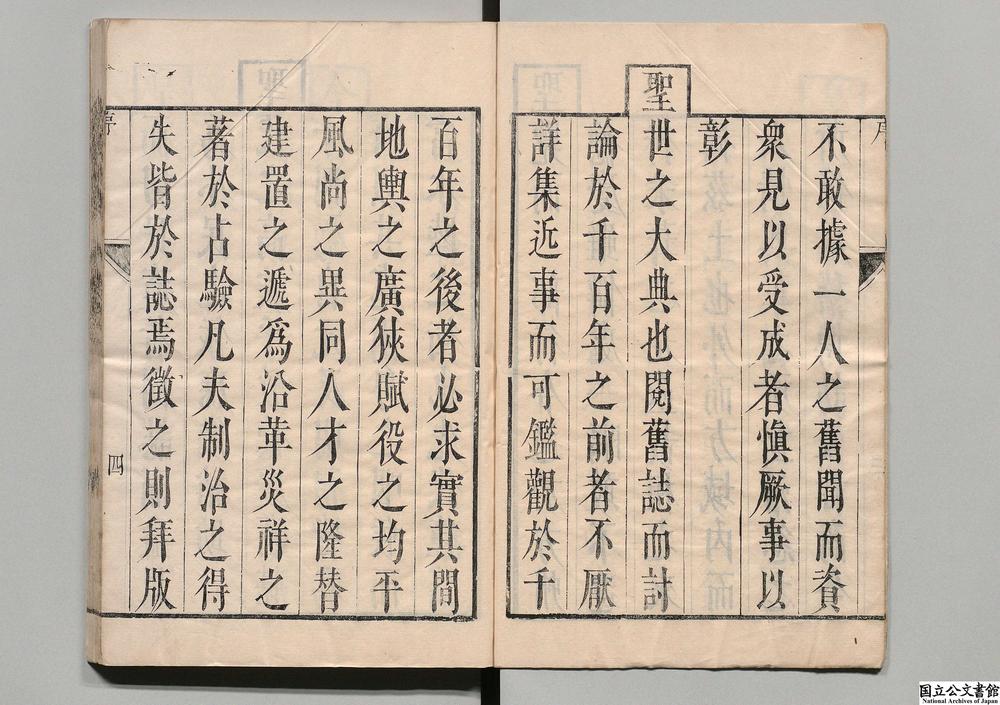 不敢據一人之舊聞而資
衆見以受成者愼厥事以
彰
聖世之大典也閱舊誌而討
論於千百年之前者不厭
詳集近事而可鑑觀於千
百年之後者必求實其間
地輿之廣狹賦役之均平
風尚之異同人才之隆替
建置之遞爲沿革災祥之
著於占驗凡夫制治之得
失皆於誌焉徵之則拜版
序
四
国立公文書館
National Archives of Japan